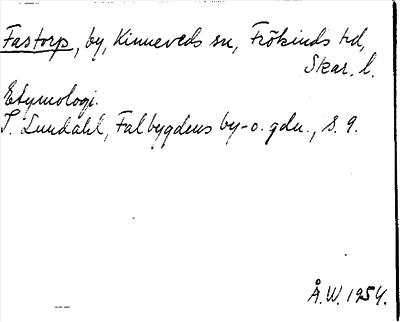 Fastorp, by, Kinneveds sn, Frökinds hd,
Skar. l.
Etymologi.
I. Lundahl, Falbygdens by-o. gdn., s. 9.
Å.W. 1954.